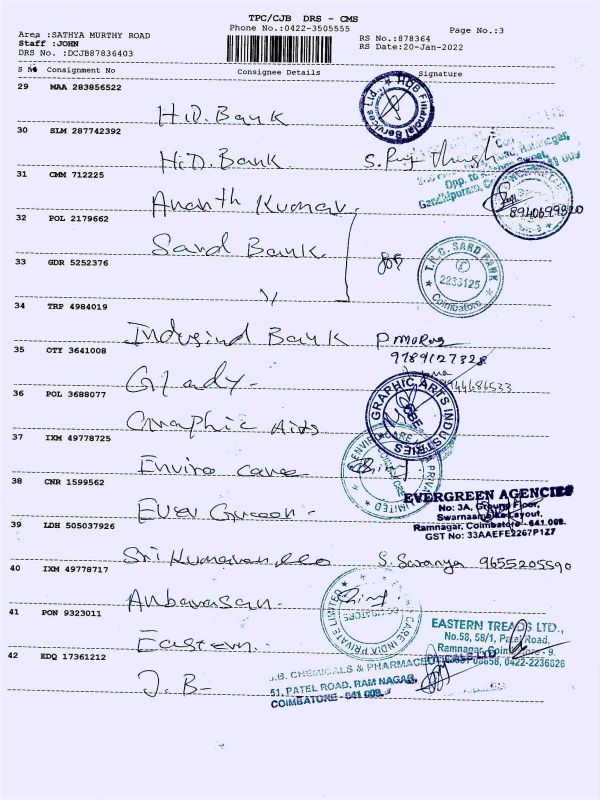 TPC/CJB DRS - CMS
Phone No.:0422-3505555
Page No.:3
Area :SATHYA MURTHY ROAD
Staff :JOHN
DRS No. :DCJB87836403
RS No.:878364
RS Date:20-Jan-2022
S No Consignment No Consignee Details Signature
29 MAA 283856522
H.D. Bank
HDB Financial Services Ltd.
30 SLM 287742392
H.D. Bank
31 CMM 712225
Ananth Kumar.
Opp. to
Gandhipuram,
8940699920
32 POL 2179662
Sard Bank
33 GDR 5252376
T.N.G. SARD BANK
2233125
Coimbatore
34 TRP 4984019
Indusind Bank
9789127328
35 OTY 3641008
Glady-
9944686533
36 POL 3688077
Graphic Arts
GRAPHIC ARTS INDUSTRIES
CBE
37 IXM 49778725
Enviro Care
38 CNR 1599562
Ever Green-
EVERGREEN AGENCIES
No: 3A, Ground Floor,
Swarnaambika Layout,
Ramnagar, Coimbatore - 641 009.
GST No: 33AAEFE2267P1Z7
39 LDH 505037926
S. Saranya 9655205590
40 IXM 49778717
Anbarasan.
CARE INDIA PRIVATE LIMITED
COIMBATORE
41 PON 9323011
Eastern.
EASTERN TREADS LTD.,
No.58, 58/1, Patel Road,
Ramnagar, Coimbatore - 9.
0422-2236626
42 EDQ 17361212
J.B-
J.B. CHEMICALS & PHARMACEUTICALS LTD
51, PATEL ROAD, RAM NAGAR,
COIMBATORE - 641 009.